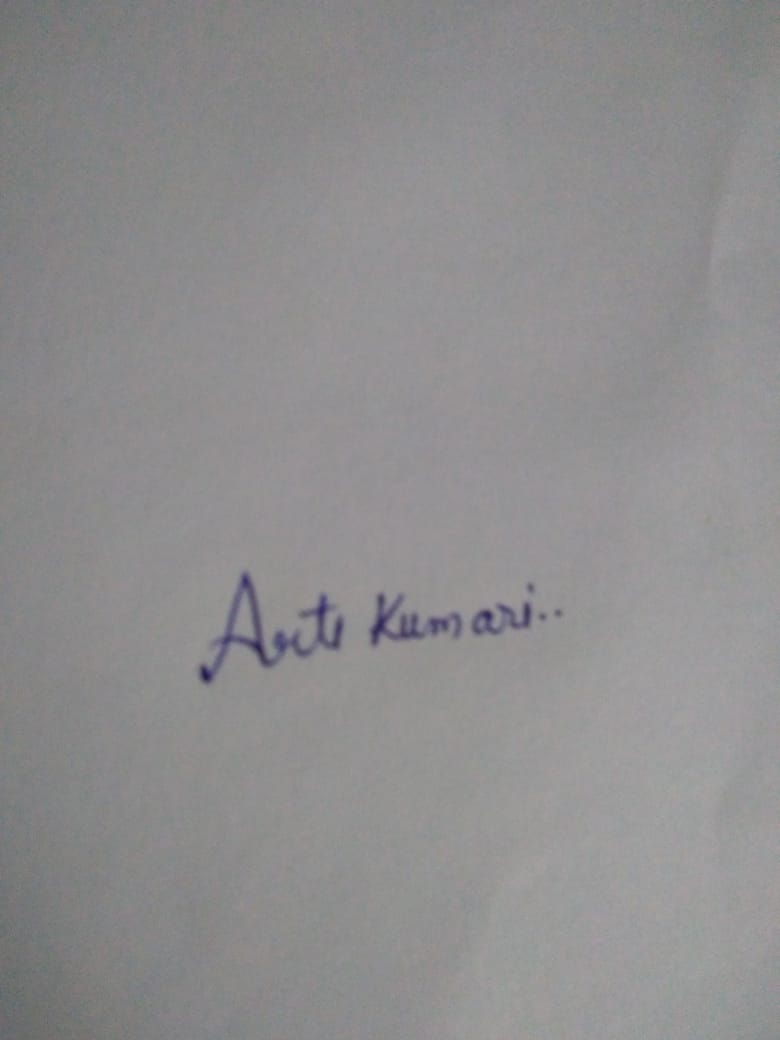 Arti Kumari..